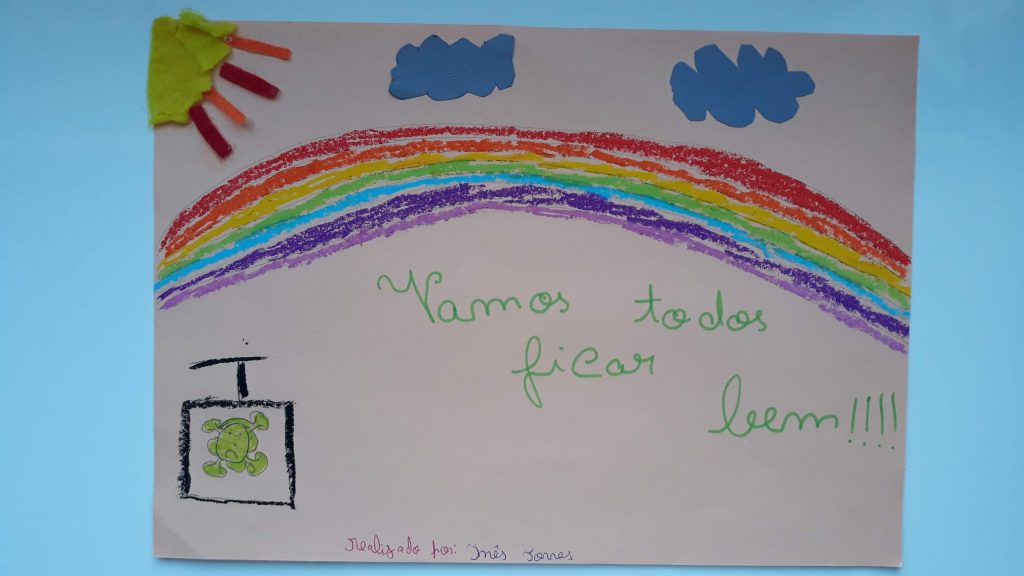 Vamos todos
ficar
bem!!!!
realizado por: Inês Torres